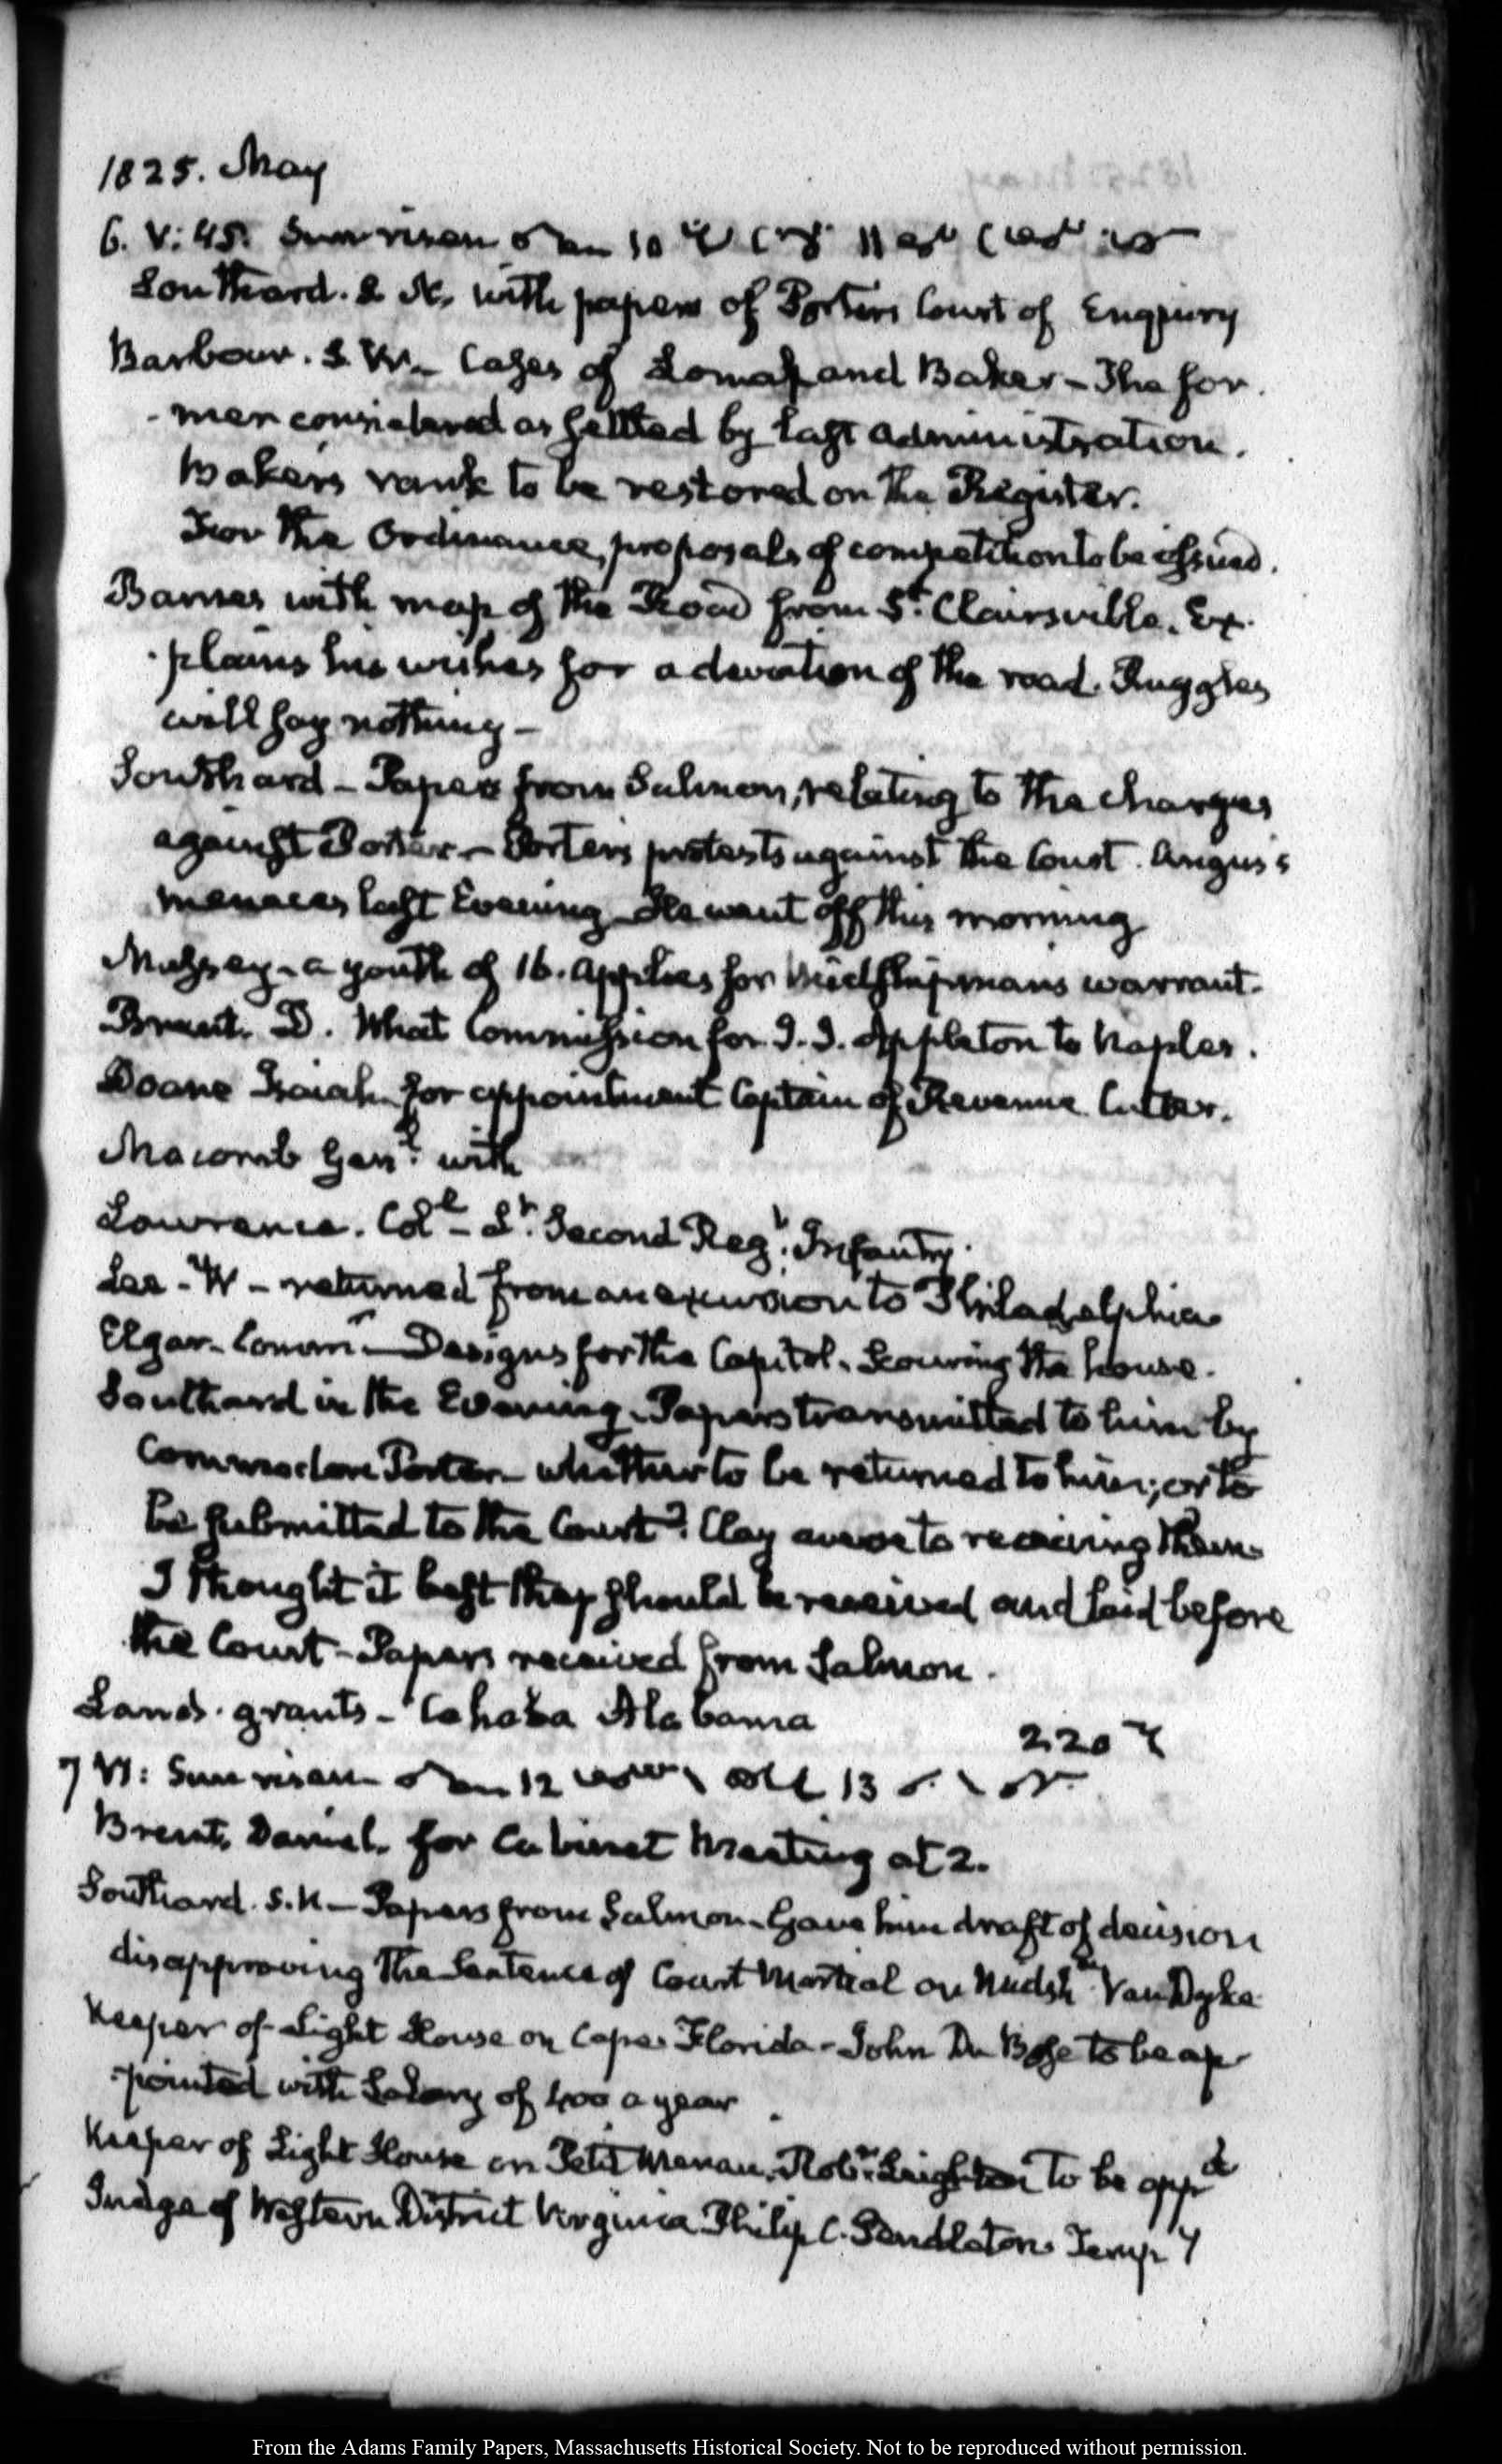 1825. May
6. V: 45. Sun risen 10 11
Southard. S. N. with papers of Porters Court of Enquiry
Barbour. S. W.- Cases of Lomax and Baker - The for-
-mer considered as settled by last administration.
Baker's rank to be restored on the Register.
For the Ordinance, proposals of competition to be issued.
Barnes with map of the Road from St. Clairsville. Ex-
-plains his wishes for a deviation of the road. Ruggles
will say nothing -
Southard - Papers from Salmon, relating to the charges
against Porter - Porter's protests against the Court. Angus's
menaces last Evening He went off this morning
a youth of 16. applies for Midshipmans warrant.
Brent. D. What Commission for J. J. Appleton to Naples.
Doane Isaiah for appointment Captain of Revenue Cutter.
Macomb Genl. with
Lawrence. Coll - Lt. Second Regt. Infantry.
Lee - W - returned from an excursion to Philadelphia
Elgar. Commr - Designs for the Capitol. Scouring the house.
Southard in the Evening. Papers transmitted to him by
Commodore Porter - whether to be returned to him; or to
be submitted to the Court? Clay averse to receiving them.
I thought it best they should be received and laid before
the Court - Papers received from Salmon.
Land. grants - Cahaba Alabama
220
7 VI: Sun risen 12 13
Brent. Daniel. for Cabinet Meeting at 2.
Southard. S. N - Papers from Salmon. Gave him draft of decision
disapproving the Sentence of Court Martial on Midshn Van Dyke
Keeper of Light House on Cape Florida - John Du Bose to be ap-
-pointed with Salary of 400 a year
Keeper of Light House on Petit Menan. Robt. Leighton to be appd
Judge of Western District Virginia Philip C. Pendleton. Tempy